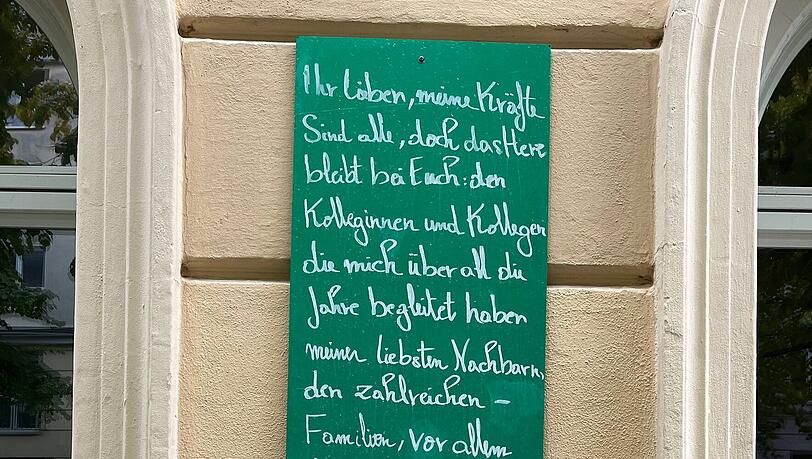 Ihr Lieben, meine Kräfte
Sind alle, doch das Herz
bleibt bei Euch: den
Kolleginnen und Kollegen
die mich über all die
Jahre begleitet haben
meinen liebsten Nachbarn,
den zahlreichen –
Familien, vor allem